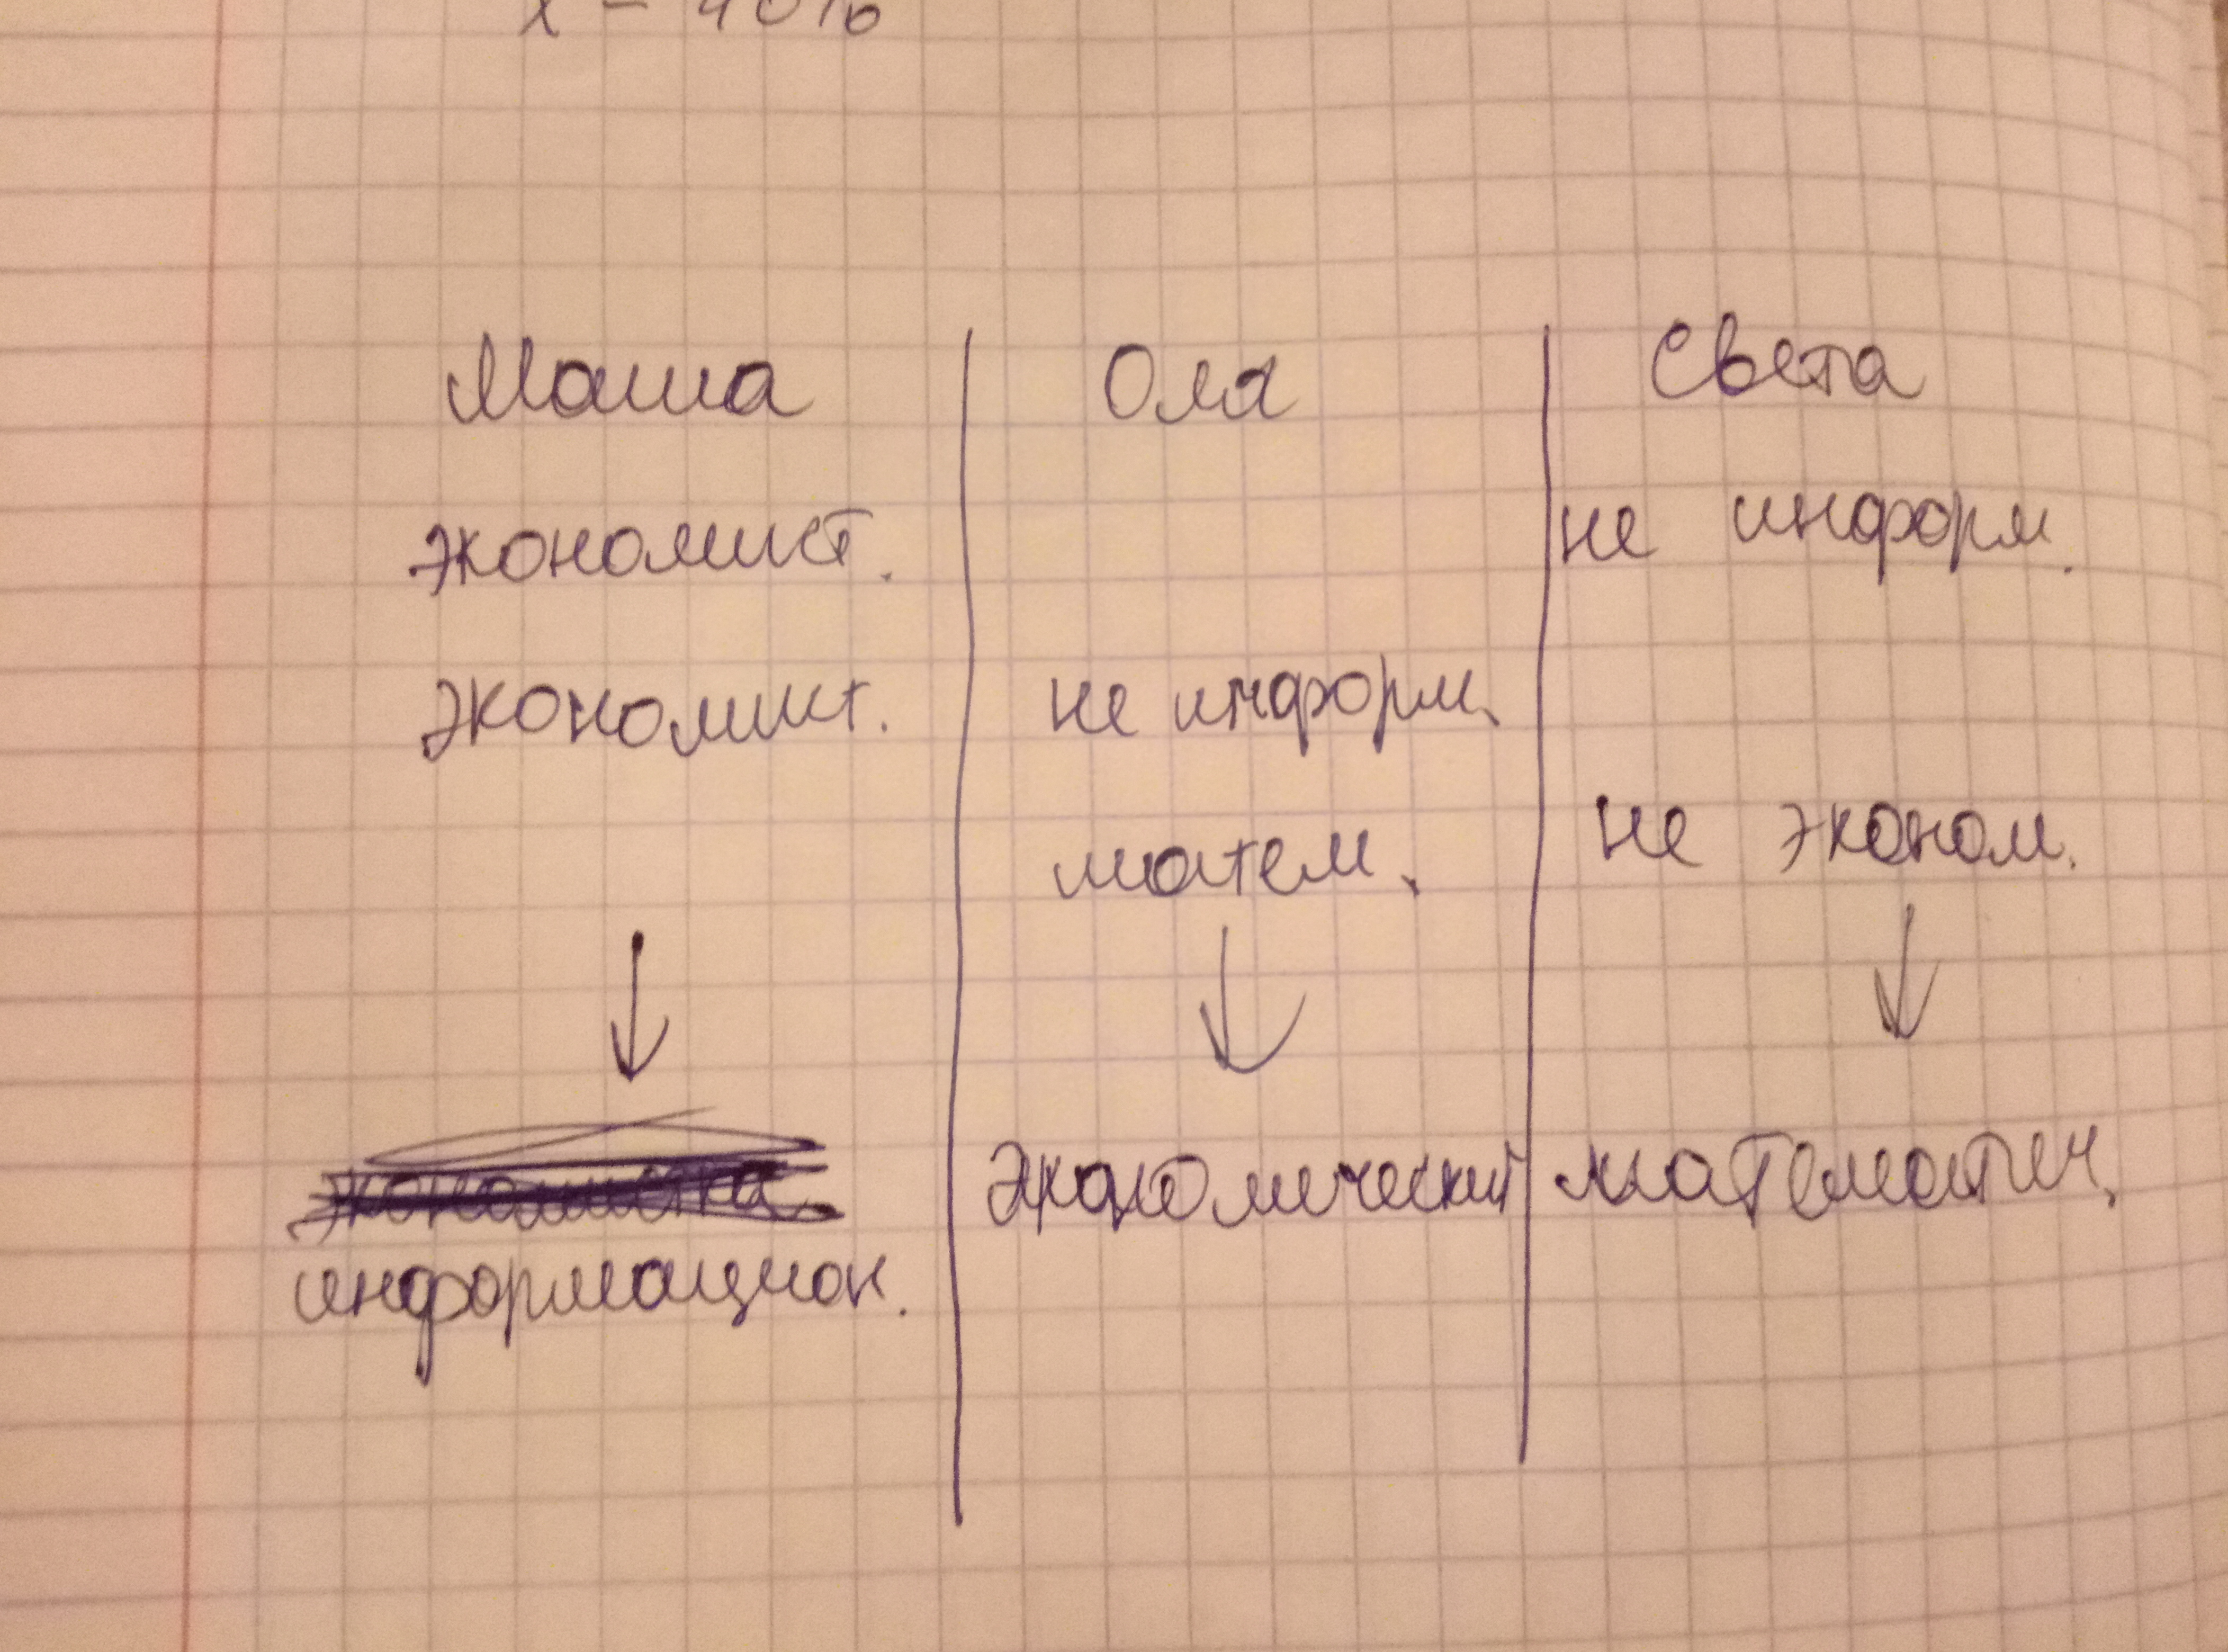 Маша Оля Света
экономист. не информ.
экономист. не информ.
матем. не эконом.
экономический математич.
информацион.